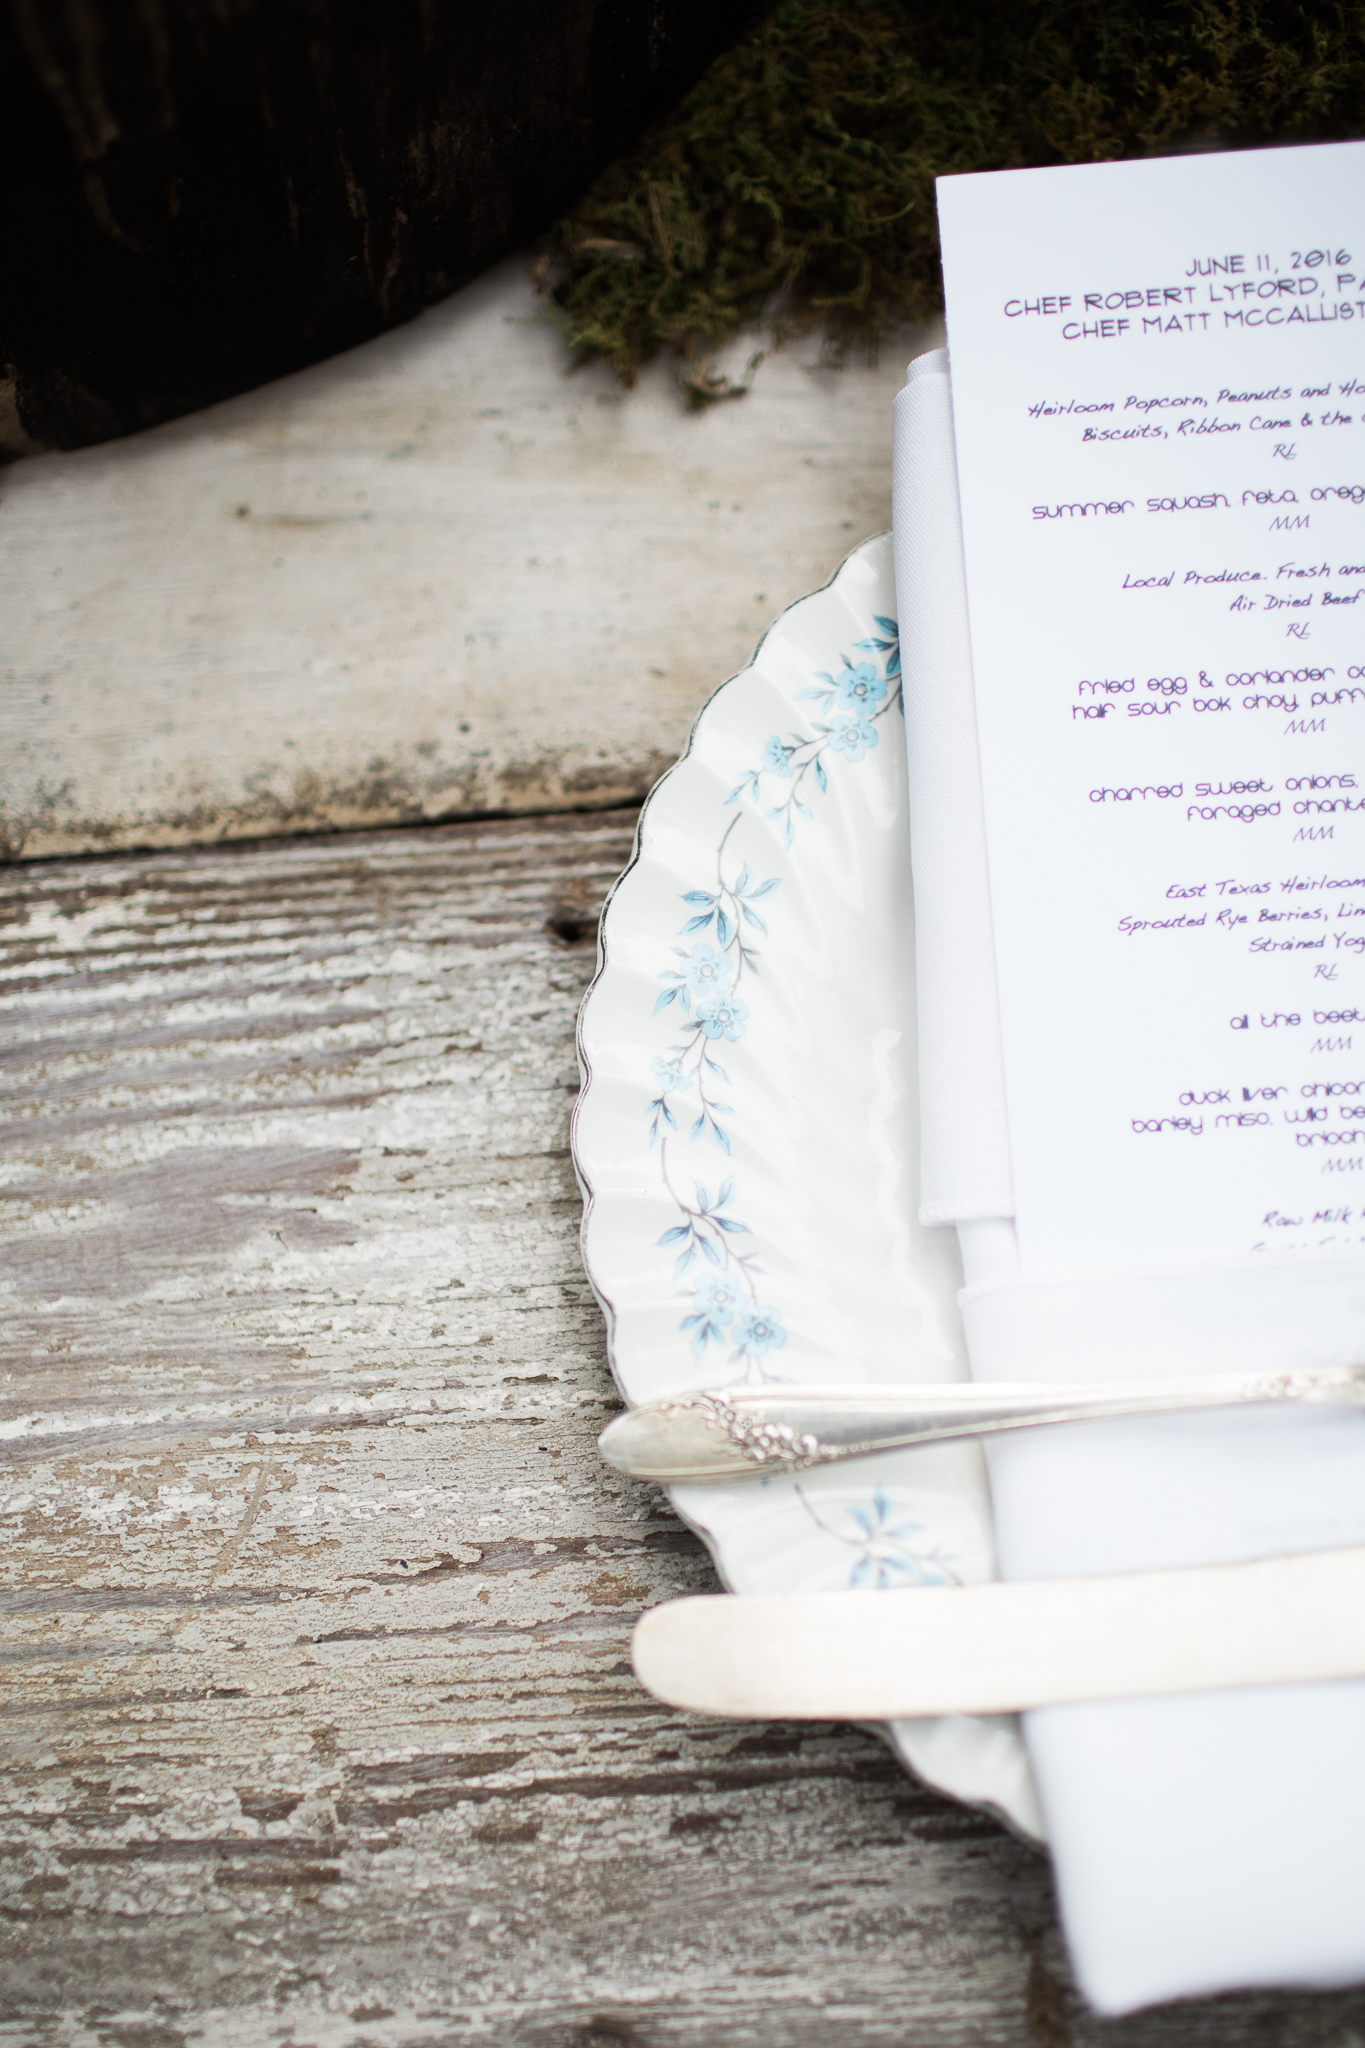 JUNE 11, 2016
CHEF ROBERT LYFORD, PA
CHEF MATT MCCALLIST
Heirloom Popcorn, Peanuts and Ho
Biscuits, Ribbon Cane & the
RL
summer squash, feta, oreg
MM
Local Produce. Fresh and
Air Dried Beef
RL
fried egg & coriander
half sour bok choy, puff
MM
charred sweet onions,
foraged chante
MM
East Texas Heirloom
Sprouted Rye Berries, Lim
Strained Yog
RL
all the beet
MM
duck liver chicor
barley miso, wild be
brioch
MM
Raw Milk